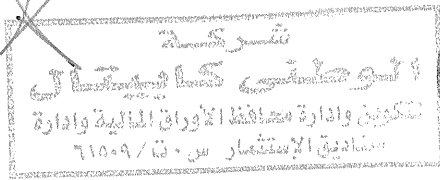 شركة
الوطنى كابيتال
لتكوين وإدارة محافظ الأوراق المالية وإدارة
صناديق الإستثمار س٠ت/٦١٥٠٩